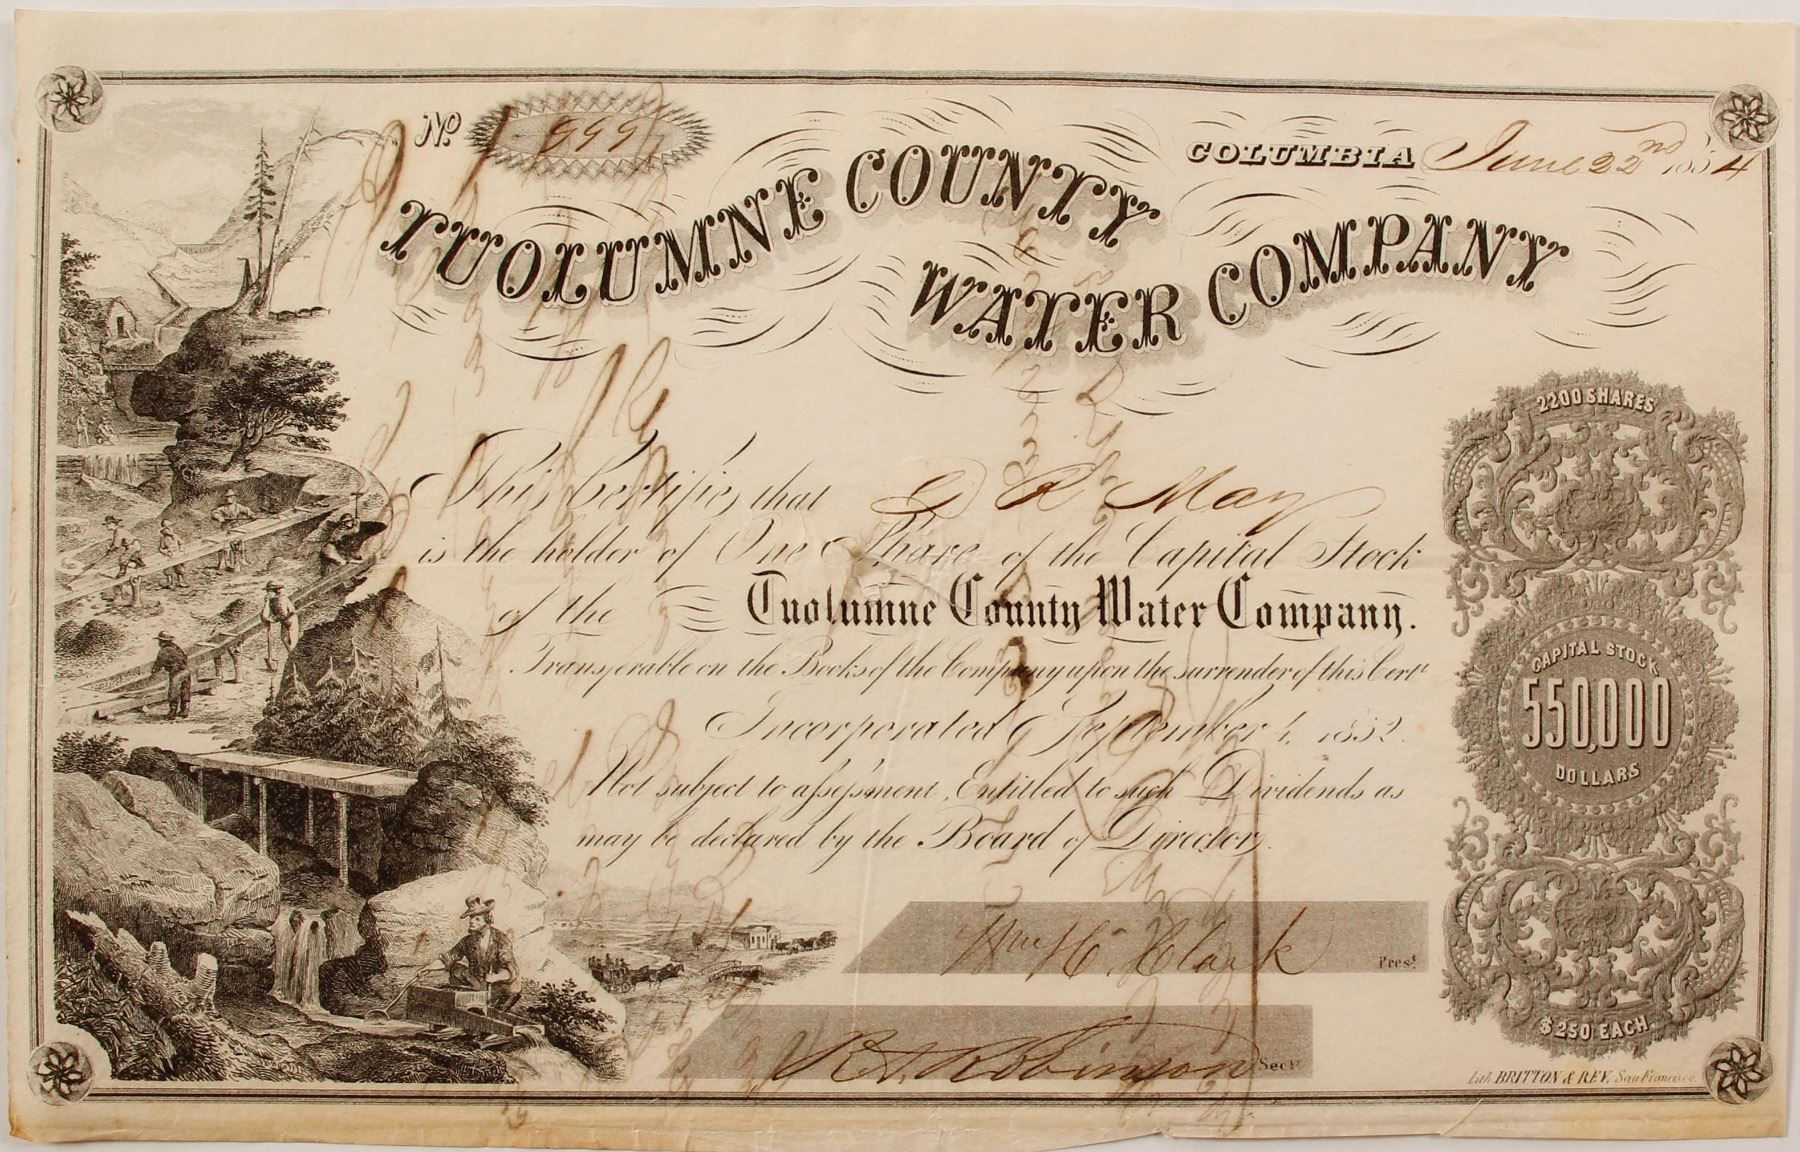 No 999
COLUMBIA June 22nd 1854
TUOLUMNE COUNTY
WATER COMPANY
This Certifies that G R May
is the holder of One Share of the Capital Stock
of the Tuolumne County Water Company.
Transferable on the Books of the Company upon the surrender of this Cert
Incorporated September 1, 1852.
Not subject to assessment, Entitled to such Dividends as
may be declared by the Board of Directors.
Wm H. Clark Prest
R A Robinson Secty
2200 SHARES
CAPITAL STOCK
550,000
DOLLARS
$250 EACH
Lith. BRITTON & REY, San Francisco.